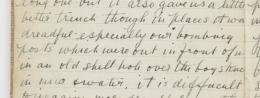 long one but it also gave us a little
better trench though in places it was
dreadful especially our bombing
posts which were out in front of us
in an old shell hole over the boys
in mud & water, it is difficult